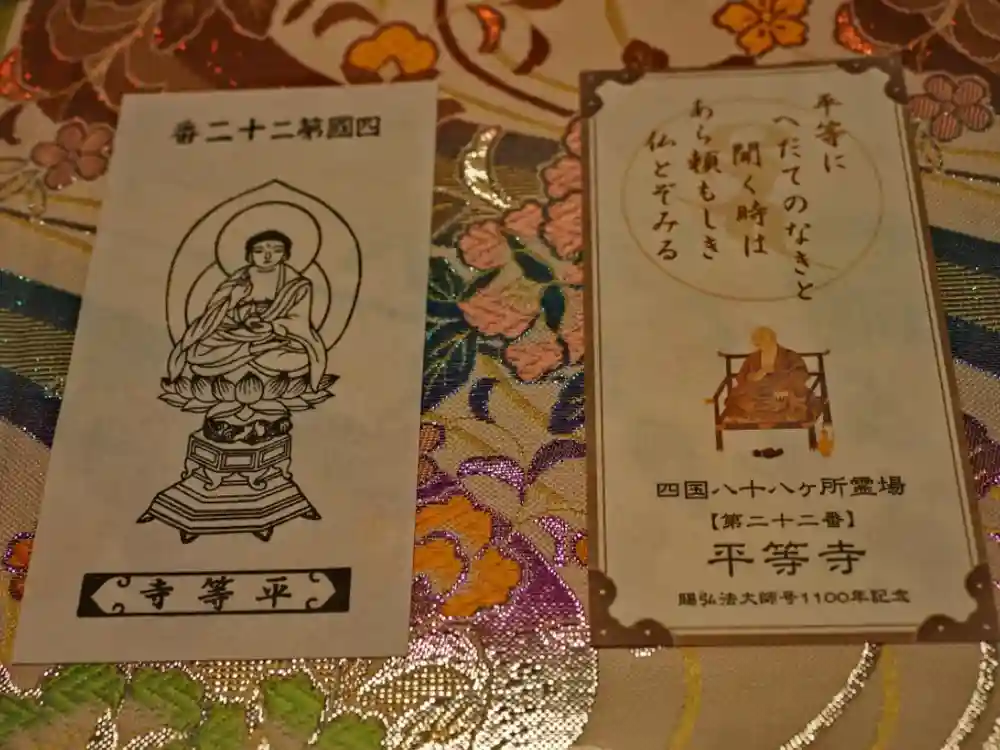 四國第二十二番
平等寺
平等に
へだてのなきと
聞く時は
あら頼もしき
仏とぞみる
四国八十八ヶ所霊場
【第二十二番】
平等寺
賜弘法大師号1100年記念